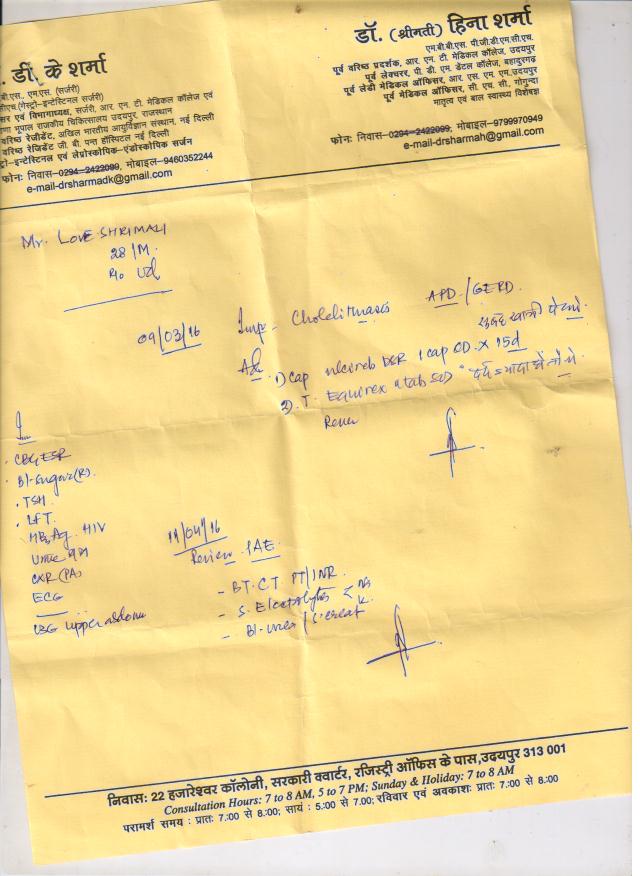 . डी. के शर्मा
बी.एस., एम.एस. (सर्जरी)
सीएच (गेस्ट्रो-इन्टेस्टिनल सर्जरी)
सर एवं विभागाध्यक्ष, सर्जरी, आर.एन. टी. मेडिकल कॉलेज एवं
णा भूपाल राजकीय चिकित्सालय उदयपुर, राजस्थान
वरिष्ठ रेजीडेंट, अखिल भारतीय आयुर्विज्ञान संस्थान, नई दिल्ली
वरिष्ठ रेजिडेंट जी. बी. पन्त हॉस्पिटल नई दिल्ली
ट्रो-इन्टेस्टिनल एवं लेप्रोस्कोपिक-एंडोस्कोपिक सर्जन
फोन: निवास-0294-2422099, मोबाइल-9460352244
e-mail-drsharmadk@gmail.com
डॉ. (श्रीमती) हिना शर्मा
एम.बी.बी.एस. पी.जी.डी.एम.सी.एच.
पूर्व वरिष्ठ प्रदर्शक, आर. एन. टी. मेडिकल कॉलेज, उदयपुर
पूर्व लेक्चरर, पी. डी. एम. डेंटल कॉलेज, बहादुरगढ़
पूर्व लेडी मेडिकल ऑफिसर, आर. एस. एम. एम. उदयपुर
पूर्व मेडिकल ऑफिसर, सी. एच. सी., गोगुन्दा
मातृत्व एवं बाल स्वास्थ्य विशेषज्ञ
फोन: निवास-0294-2422099, मोबाइल-9799970949
e-mail-drsharmah@gmail.com
Mr. LOVE SHRIMALI
28/M.
R/o Ud
09/03/16
Imp - Cholelithiasis APD/GERD.
1) Cap DSR 1 cap OD x 15d
2) T. Equirex 1 tab SOS
CBC, ESR
Bl-Sugar (R).
TSH
LFT.
HBsAg. HIV
Urine
CXR (PA)
ECG
upper abdomen
11/04/16
Review
- BT. CT PT/INR.
- S. Electrolytes < Na K.
- Bl-urea / S. creat
निवास: 22 हजारेश्वर कॉलोनी, सरकारी क्वार्टर, रजिस्ट्री ऑफिस के पास, उदयपुर 313 001
Consultation Hours: 7 to 8 AM, 5 to 7 PM; Sunday & Holiday: 7 to 8 AM
परामर्श समय : प्रातः 7.:00 से 8.:00; सायं : 5.:00 से 7.00; रविवार एवं अवकाश: प्रातः 7.:00 से 8.:00